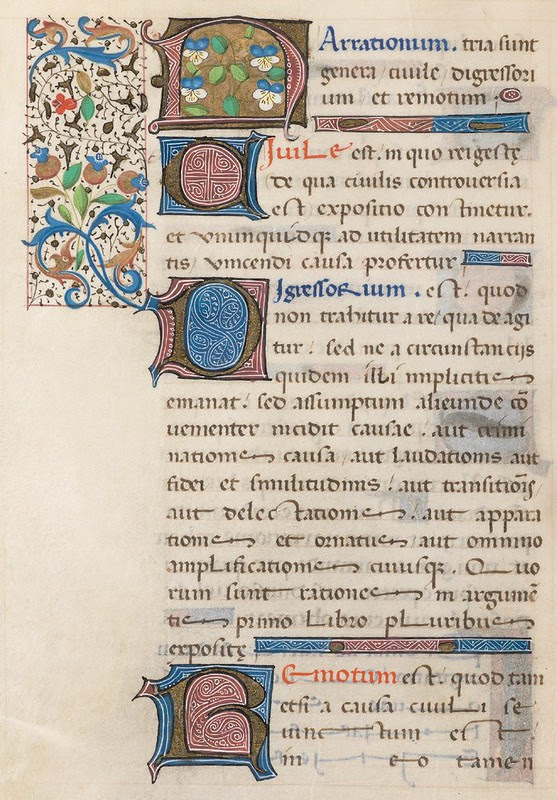 NArrationum. tria sunt
genera / ciuile / digressori
um et remotum.
CIuiLe est, in quo rei gestę
de qua ciuilis controuersia
est expositio continetur.
et unumquidqꝫ ad utilitatem narran
tis / uincendi causa profertur
DIgressoRium. est. quod
non trahitur a re / qua de agi
tur: sed ne a circunstancijs
quidem illi implicitis
emanat: sed assumptum aliunde cō
uenienter incidit causae: aut crimi
nationis causa / aut laudationis aut
fidei et similitudinis: aut transitiōis
aut delectationis: aut appara
tionis et ornatus / aut omnino
amplificationis cuiusqꝫ. Quo
rum sunt rationes in argumē
tis primo Libro pluribus
expositę
REmotum est. quod tam
etsi a causa ciuiLi se
iunctum est.
in eo tamen